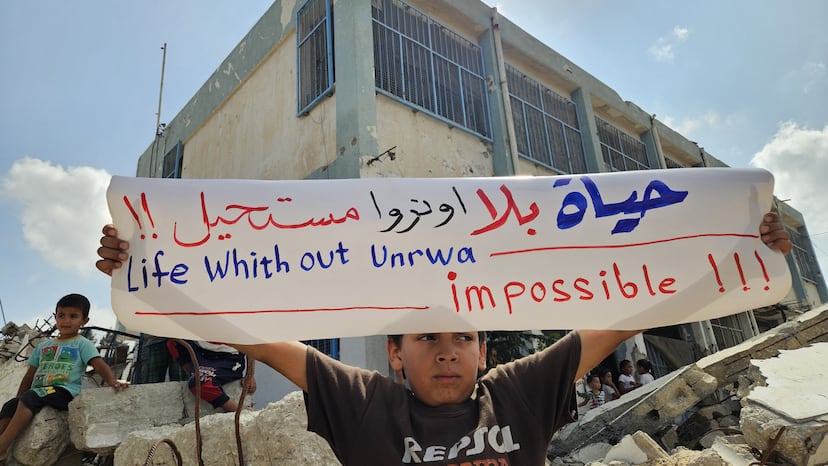 حياة بلا اونروا مستحيل !!
Life Whith out Unrwa
impossible !!!
REPSOL